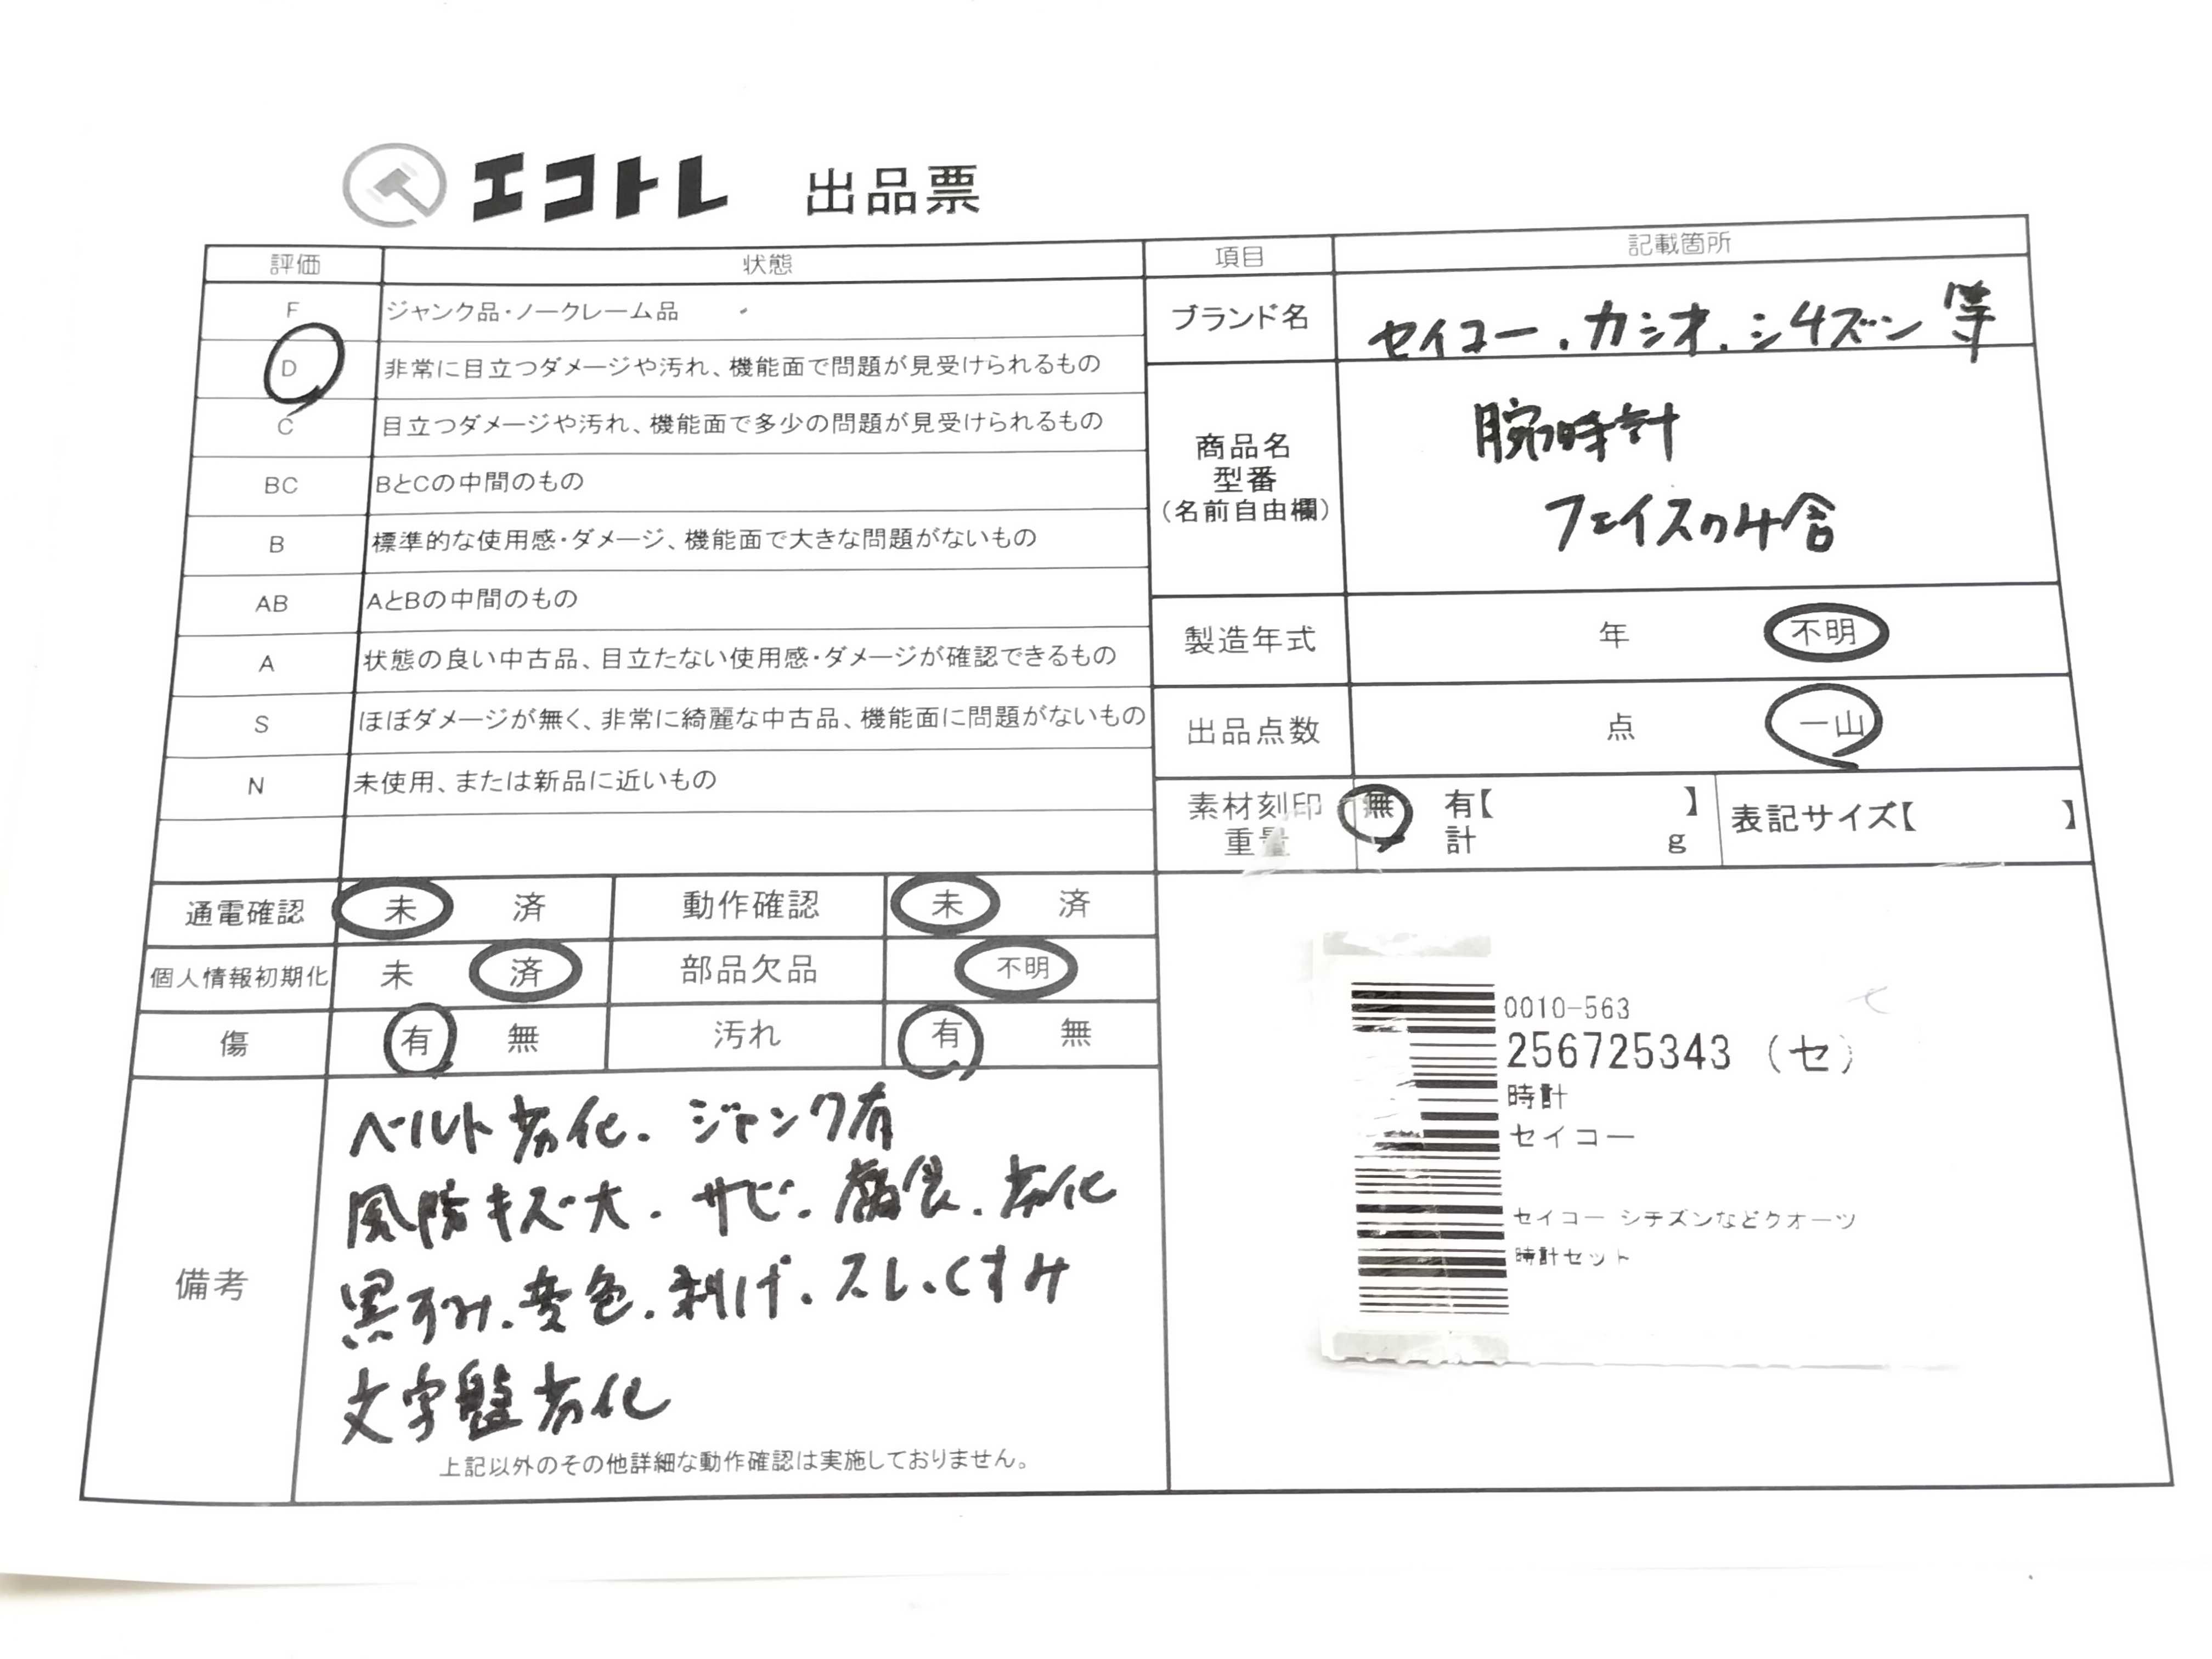 エコトレ 出品票
評価 状態 項目 記載箇所
F ジャンク品・ノークレーム品
D 非常に目立つダメージや汚れ、機能面で問題が見受けられるもの
C 目立つダメージや汚れ、機能面で多少の問題が見受けられるもの
BC BとCの中間のもの
B 標準的な使用感・ダメージ、機能面で大きな問題がないもの
AB AとBの中間のもの
A 状態の良い中古品、目立たない使用感・ダメージが確認できるもの
S ほぼダメージが無く、非常に綺麗な中古品、機能面に問題がないもの
N 未使用、または新品に近いもの
ブランド名 セイコー.カシオ.シチズン等
商品名
型番
(名前自由欄)
腕時計
フェイスのみ含
製造年式 年 不明
出品点数 点 一山
素材刻印 無 有【 】 表記サイズ【 】
重量 計 g
通電確認 未 済 動作確認 未 済
個人情報初期化 未 済 部品欠品 不明
傷 有 無 汚れ 有 無
備考
ベルト劣化.ジャンク有
風防キズ大.サビ.腐食.劣化
黒ずみ.変色.剥げ.スレ.くすみ
文字盤劣化
上記以外のその他詳細な動作確認は実施しておりません。
0010-563
256725343 (セ)
時計
セイコー
セイコー シチズンなどクオーツ
時計セット